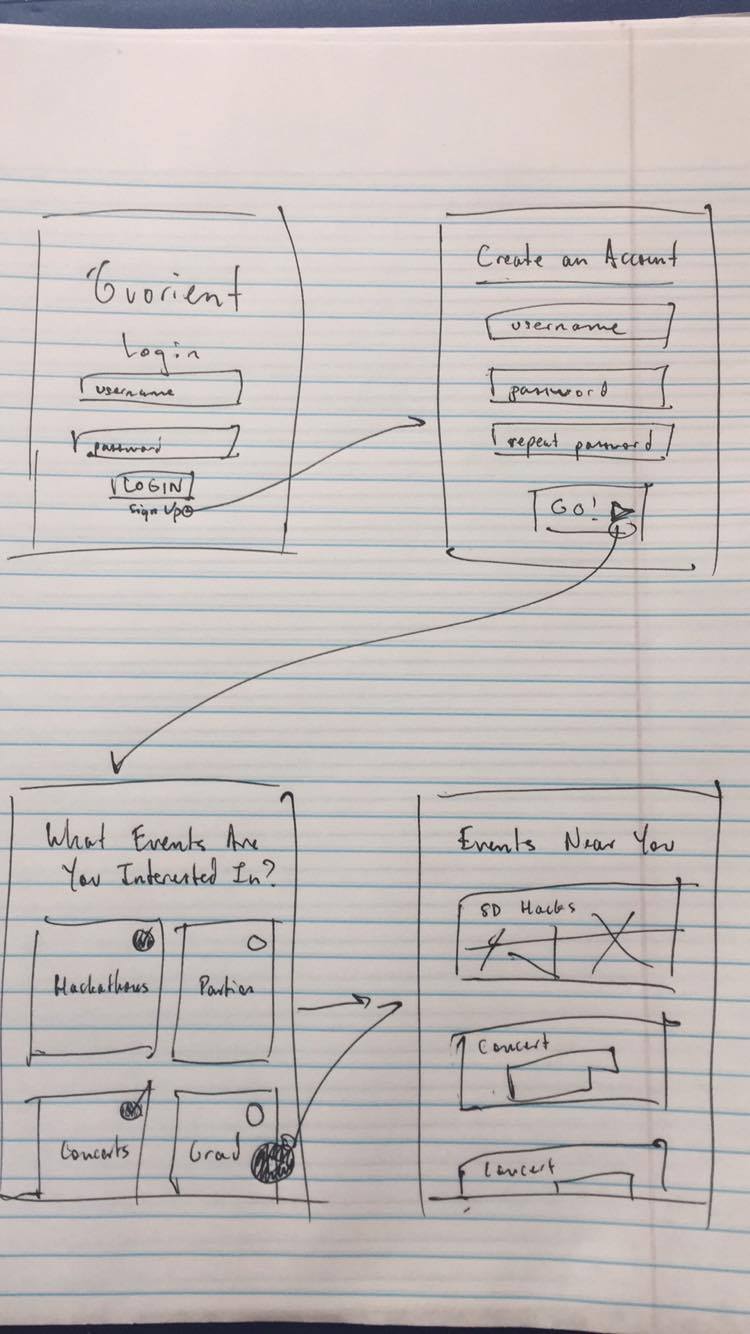 Evorient
Login
username
password
LOGIN
Sign Up
Create an Account
username
password
repeat password
GO!
What Events Are
You Interested In?
Hackathons
Parties
Concerts
Grad
Events Near You
SD Hacks
Concert
Concert